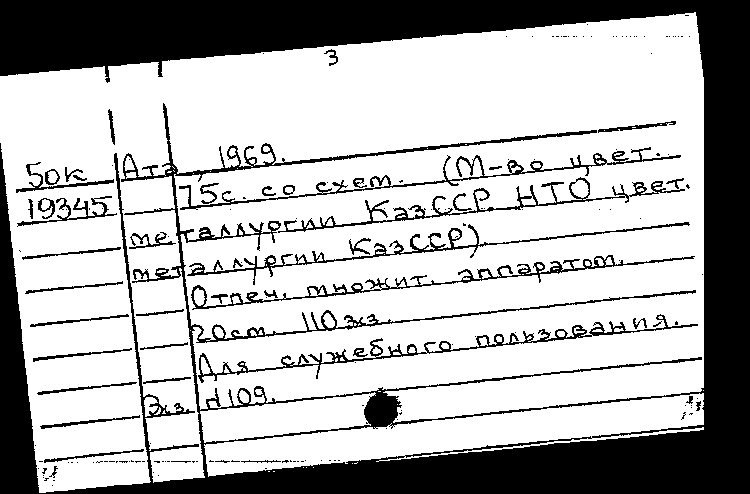 3
50к Ата, 1969.
19345 75с. со схем. (М-во цвет.
металлургии КазССР. НТО цвет.
металлургии КазССР).
Отпеч. множит. аппаратом.
20см. 110 экз.
Для служебного пользования.
Экз. №109.